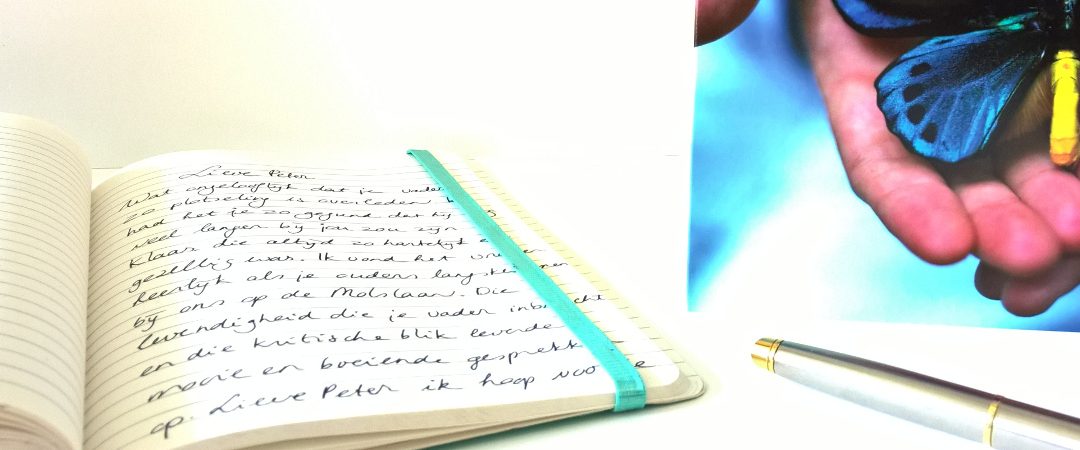 Lieve Peter
Wat ongelooflijk dat je vader
zo plotseling is overleden.
had het je zo gegund dat hij
veel langer bij jou zou zijn
Klaas, die altijd zo hartelijk
gezellig was. Ik vond het
heerlijk als je ouders
bij ons op de Molslaan. Die
levendigheid die je vader
en die kritische blik leverde
mooie en boeiende
op. Lieve Peter ik hoop